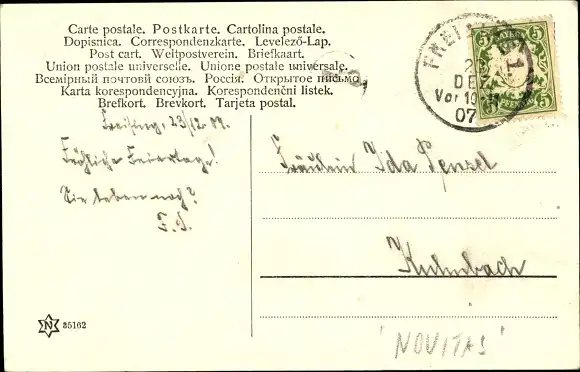 Carte postale. Postkarte. Cartolina postale.
Dopisnica. Correspondenzkarte. Levelező-Lap.
Post cart. Weltpostverein. Briefkaart.
Union postale universelle. Unione postale universale.
Всемірный почтовй союзъ. Россія. Открытое письмо
Karta korespondencyjna. Korespondenční listek.
Brefkort. Brevkort. Tarjeta postal.
FREISING 1.
DEZ
Vor 10
07
BAYERN
5 5
5 PFENNIG 5
Freising, 23/12.07.
Fröhliche Feiertage!
Sie leben noch?
F. S.
Fräulein Ida Penzel
Kulmbach
N 35162
"NOVITAS"